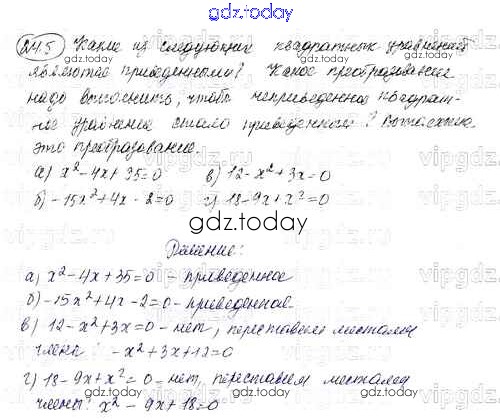 gdz.today
gdz.today
245 Какие из следующих квадратных уравнений
являются приведенными? Какое преобразование
надо выполнить, чтобы неприведенное квадрат-
ное уравнение стало приведенным? Выполните
это преобразование.
а) x² - 4x + 35 = 0 в) 12 - x² + 3x = 0
б) -15x² + 4x - 2 = 0 г) 18 - 9x + x² = 0
gdz.today
Решение:
а) x² - 4x + 35 = 0 - приведенное
б) -15x² + 4x - 2 = 0 - приведенное
в) 12 - x² + 3x = 0 - нет, переставим местами
члены: -x² + 3x + 12 = 0
г) 18 - 9x + x² = 0 - нет, переставим местами
члены: x² - 9x + 18 = 0
gdz.today
gdz.today